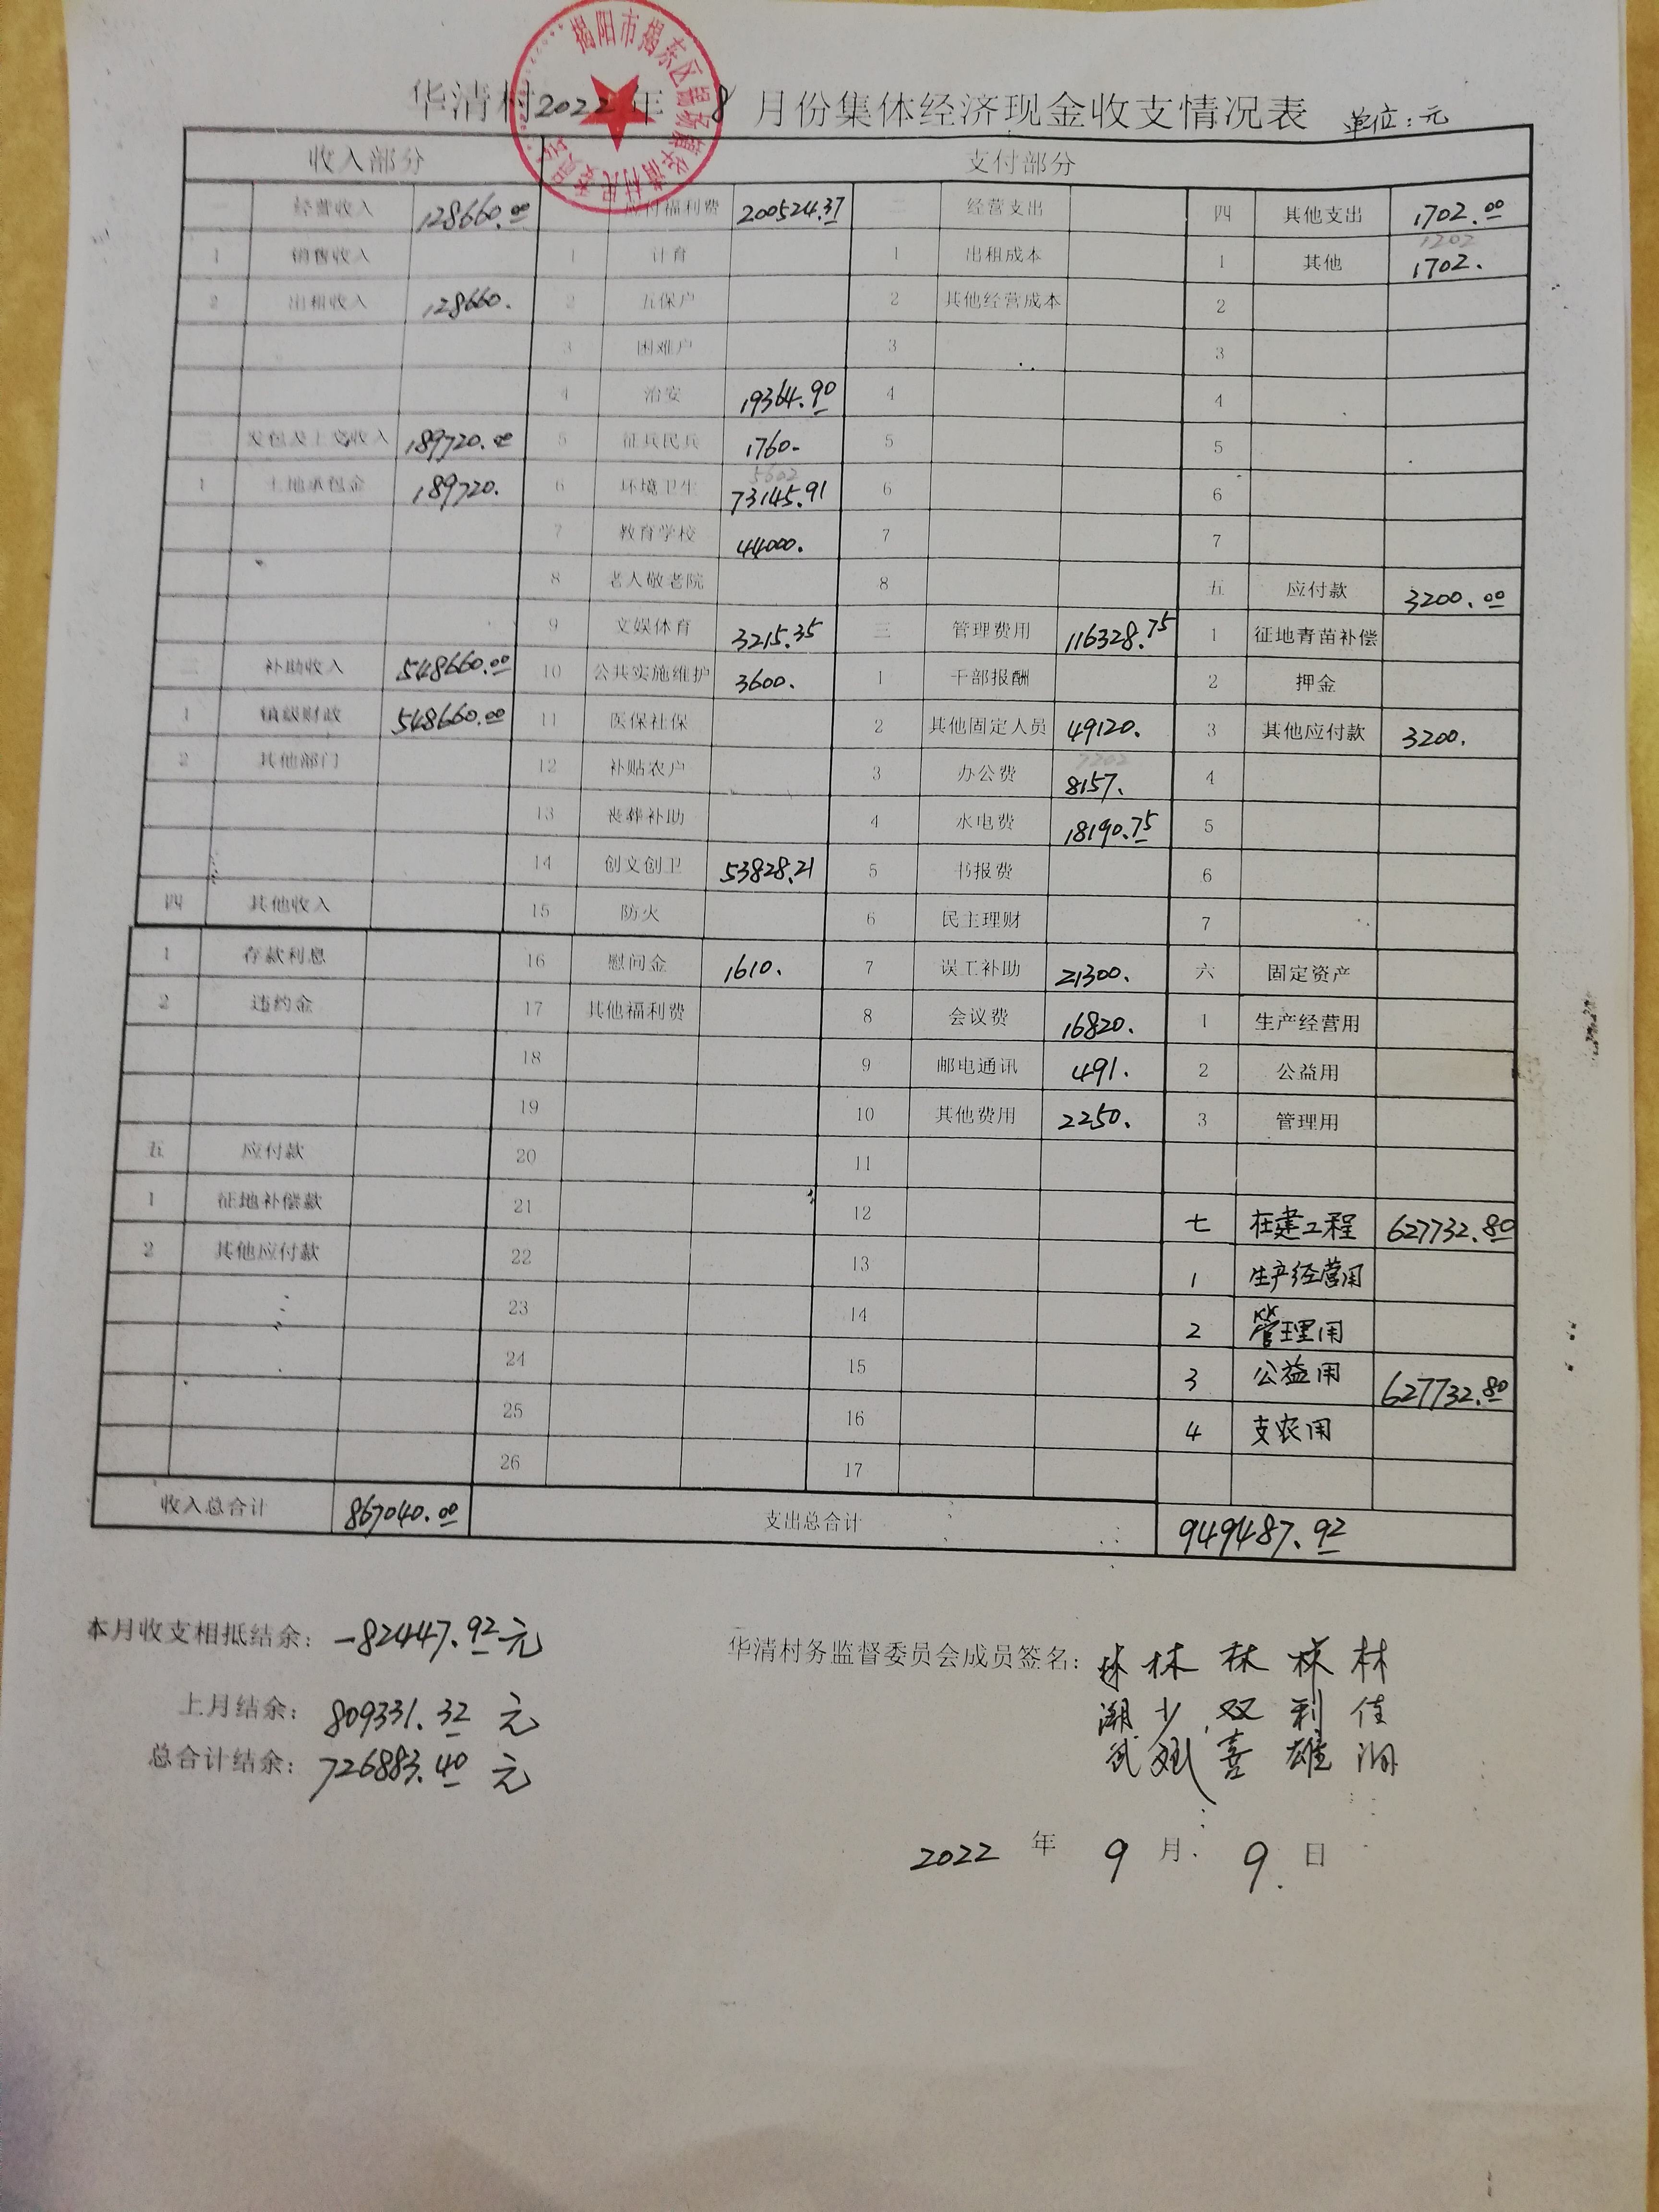 揭阳市揭东区锡场镇华清村民委员会
华清村2022年8月份集体经济现金收支情况表 单位:元
收入部分 支付部分
一 经营收入 128660.00 应付福利费 200524.37 二 经营支出 四 其他支出 1702.00
1 销售收入 1 计育 1 出租成本 1 其他 1702.
2 出租收入 128660. 2 五保户 2 其他经营成本 2
3 困难户 3 3
4 治安 19364.90 4 4
二 发包及上交收入 189720.00 5 征兵民兵 1760- 5 5
1 土地承包金 189720. 6 环境卫生 73145.91 6 6
7 教育学校 44000. 7 7
8 老人敬老院 8 五 应付款 3200.00
9 文娱体育 3215.35 三 管理费用 116328.75 1 征地青苗补偿
三 补助收入 548660.00 10 公共实施维护 3600. 1 干部报酬 2 押金
1 镇级财政 548660.00 11 医保社保 2 其他固定人员 49120. 3 其他应付款 3200.
2 其他部门 12 补贴农户 3 办公费 8157. 4
13 丧葬补助 4 水电费 18190.75 5
14 创文创卫 53828.21 5 书报费 6
四 其他收入 15 防火 6 民主理财 7
1 存款利息 16 慰问金 1610. 7 误工补助 21300. 六 固定资产
2 违约金 17 其他福利费 8 会议费 16820. 1 生产经营用
18 9 邮电通讯 491. 2 公益用
19 10 其他费用 2250. 3 管理用
五 应付款 20 11
1 征地补偿款 21 12 七 在建工程 627732.80
2 其他应付款 22 13 1 生产经营用
23 14 2 管理用
24 15 3 公益用 627732.80
25 16 4 支农用
26 17
收入总合计 867040.00 支出总合计 949487.92
本月收支相抵结余: -82447.92元
华清村务监督委员会成员签名: 林 林 林 林 林
上月结余: 809331.32 元
潮 少 双 利 佳
总合计结余: 726883.40 元
武 斌 喜 雄
2022 年 9 月 9 日